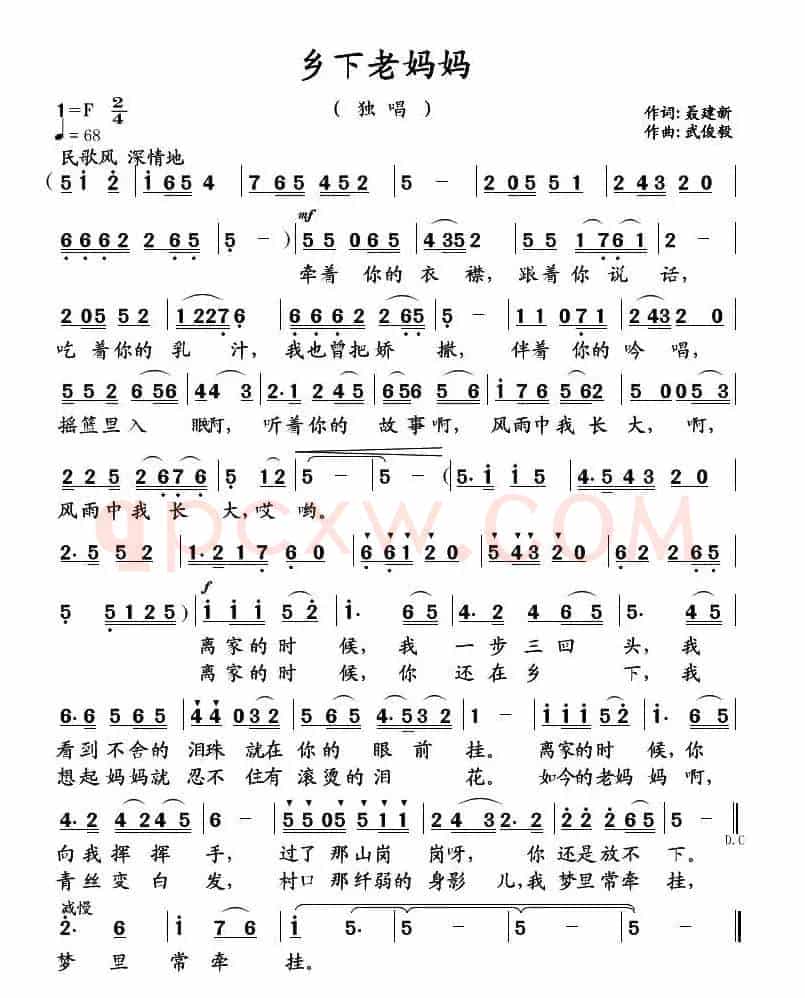 乡下老妈妈
（独唱）
1=F 2/4
♩=68
作词:聂建新
作曲:武俊毅
民歌风 深情地
( 5 1 2 | 1 6 5 4 | 7 6 5 4 5 2 | 5 - | 2 0 5 5 1 | 2 4 3 2 0 |
mf
6 6 6 2 2 6 5 | 5 - ) | 5 5 0 6 5 | 4 3 5 2 | 5 5 1 7 6 1 | 2 - |
牵着 你的 衣 襟， 跟着 你 说 话，
2 0 5 5 2 | 1 2 2 7 6 | 6 6 6 2 2 6 5 | 5 - | 1 1 0 7 1 | 2 4 3 2 0 |
吃 着你的 乳 汁， 我也曾把娇 撇， 伴着 你的吟 唱，
5 5 5 2 6 5 6 | 4 4 3 | 2· 1 2 4 5 | 6 5 6 5 6 | 1 7 6 5 6 2 | 5 0 0 5 3 |
摇篮里入 眠啊， 听着你的 故事啊， 风雨中我 长 大， 啊，
2 2 5 2 6 7 6 | 5 1 2 | 5 - | 5 - | ( 5· 1 1 5 | 4· 5 4 3 2 0 |
风雨中我 长 大，哎 哟。
qpcxw.COM
2· 5 5 2 | 1· 2 1 7 6 0 | 6 6 1 2 0 | 5 4 3 2 0 | 6 6 6 2 2 6 5 |
f
5 5 1 2 5 ) | 1 1 1 5 2 | 1· 6 5 | 4· 2 4 6 5 | 5· 4 5 |
离家的时 候，我 一步三回 头，我
离家的时 候，你 还在乡 下，我
6· 6 5 6 5 | 4 4 0 3 2 | 5 6 5 4· 5 3 2 | 1 - | 1 1 1 5 2 | 1· 6 5 |
看到不舍的 泪珠 就在你的 眼 前 挂。 离家的时 候，你
想起妈妈就 忍不 住有滚烫的泪 花。 如今的老妈 妈啊，
4· 2 4 2 4 5 | 6 - | 5 5 0 5 1 1 | 2 4 3 2 | 2 2 6 6 5 | 5 - ‖
D.C
向我 挥 挥 手， 过了 那山岗 岗呀， 你 还是放不 下。
青丝变白 发， 村口 那纤弱的身影 儿，我 梦里常牵 挂，
减慢
2· 6 | 1 7 6 | 5· 5· | 5 - | 5 - ‖
梦 里 常牵 挂。